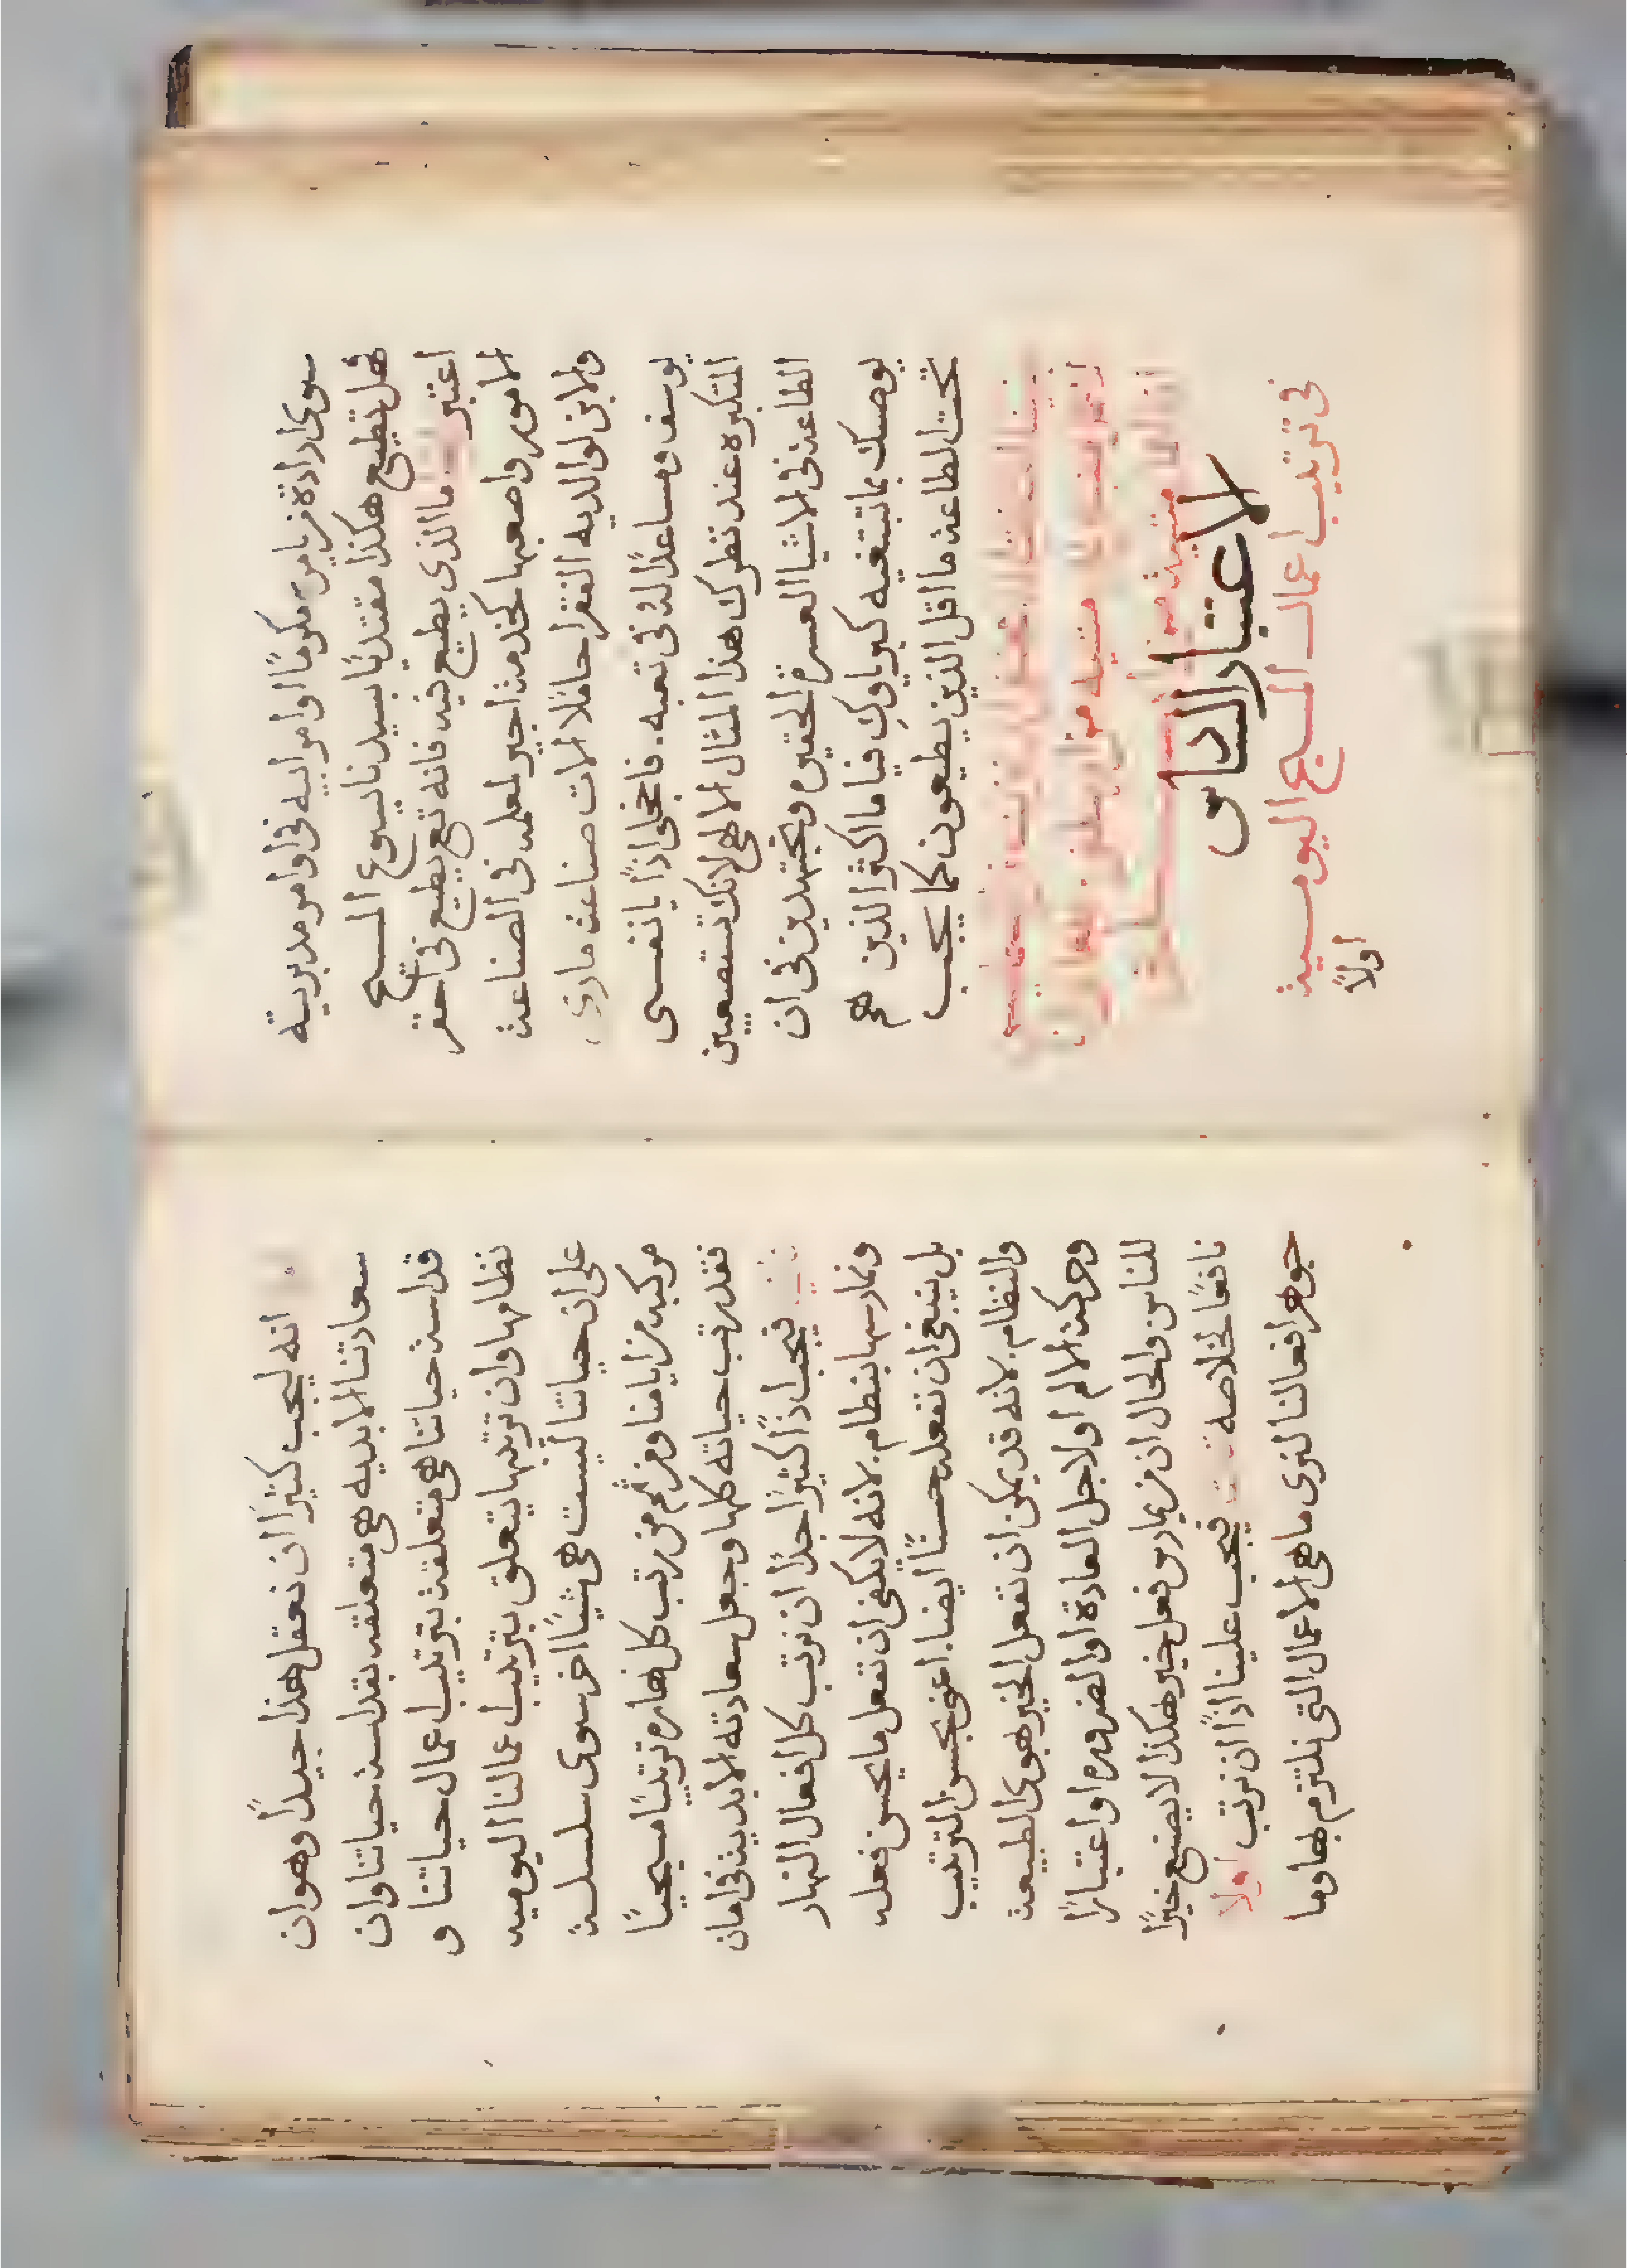 سوى ارادة مزيامر مكرمًا لاوامر ابيه فى اوامر مدبريه
فهل تطيع هكذا مقتديًا بسيدنا يسوع المسيح
اعتبر ما الذى يطيع فيه فانه تع يطيع فى احقر
الامور واصعبها كخدمة اجير لمعلمه فى الصناعة
والابن لوالديه الفقرا حاملا الات صناعة مارى
يوسف ومساعدًا له فى تعبه. فاخجلى اذًا يا نفسى
المتكبره عند نظرك هذا المثال الالهى لانك تستصعبين
الطاعة فى الاشيا العسرة الحقيره وتجتهدين فى ان
يوصيك بما تبتغيه كبرياوكِ فيا ما اكثر الذين هم
تحت الطاعة ما اقل الذين يطيعون كما يجب
الاعتبار السادس
فى ترتيب اعمال المسيح اليوميه
اولًا
انه ليجب كثيرًا ان نعقل هذا جيدًا وهو ان
سعادتنا الابديه هى متعلقه بقداسة حياتنا وان
قداسة حياتنا هى متعلقة بترتيب اعمال حياتنا و
نظامها وان ترتيبها يتعلق بترتيب اعمالنا اليوميه
على ان حياتنا ليست هى شيئًا اخر سوى سلسلة
مركبه من ايامنا ومن ثم من رتب كل نهاره ترتيبًا مسيحيًا
فقد رتب حياته كلها وجعل سعادته الابدية فى امان
فيجب اذًا كثيرًا جدًا ان نرتب كل افعال النهار
ونمارسها بنظام. لانه لا يكفى ان نفعل ما يحسن فعله
بل ينبغى ان نفعله حسنًا ايضا. اعنى بحسن الترتيب
والنظام. لانه قد يمكن ان نفعل الخير بهوى الطبيعة
وحركة الالم او لاجل العادة او الضروره او اعتبارًا
للناس والحال ان من يمارس فعل خير هكذا لا يصنع خيرًا
نافعًا لخلاصه فيجب علينا اذًا ان نرتب اولا
جوهر افعالنا لنرى ما هى الاعمال التى نلتزم بها وما